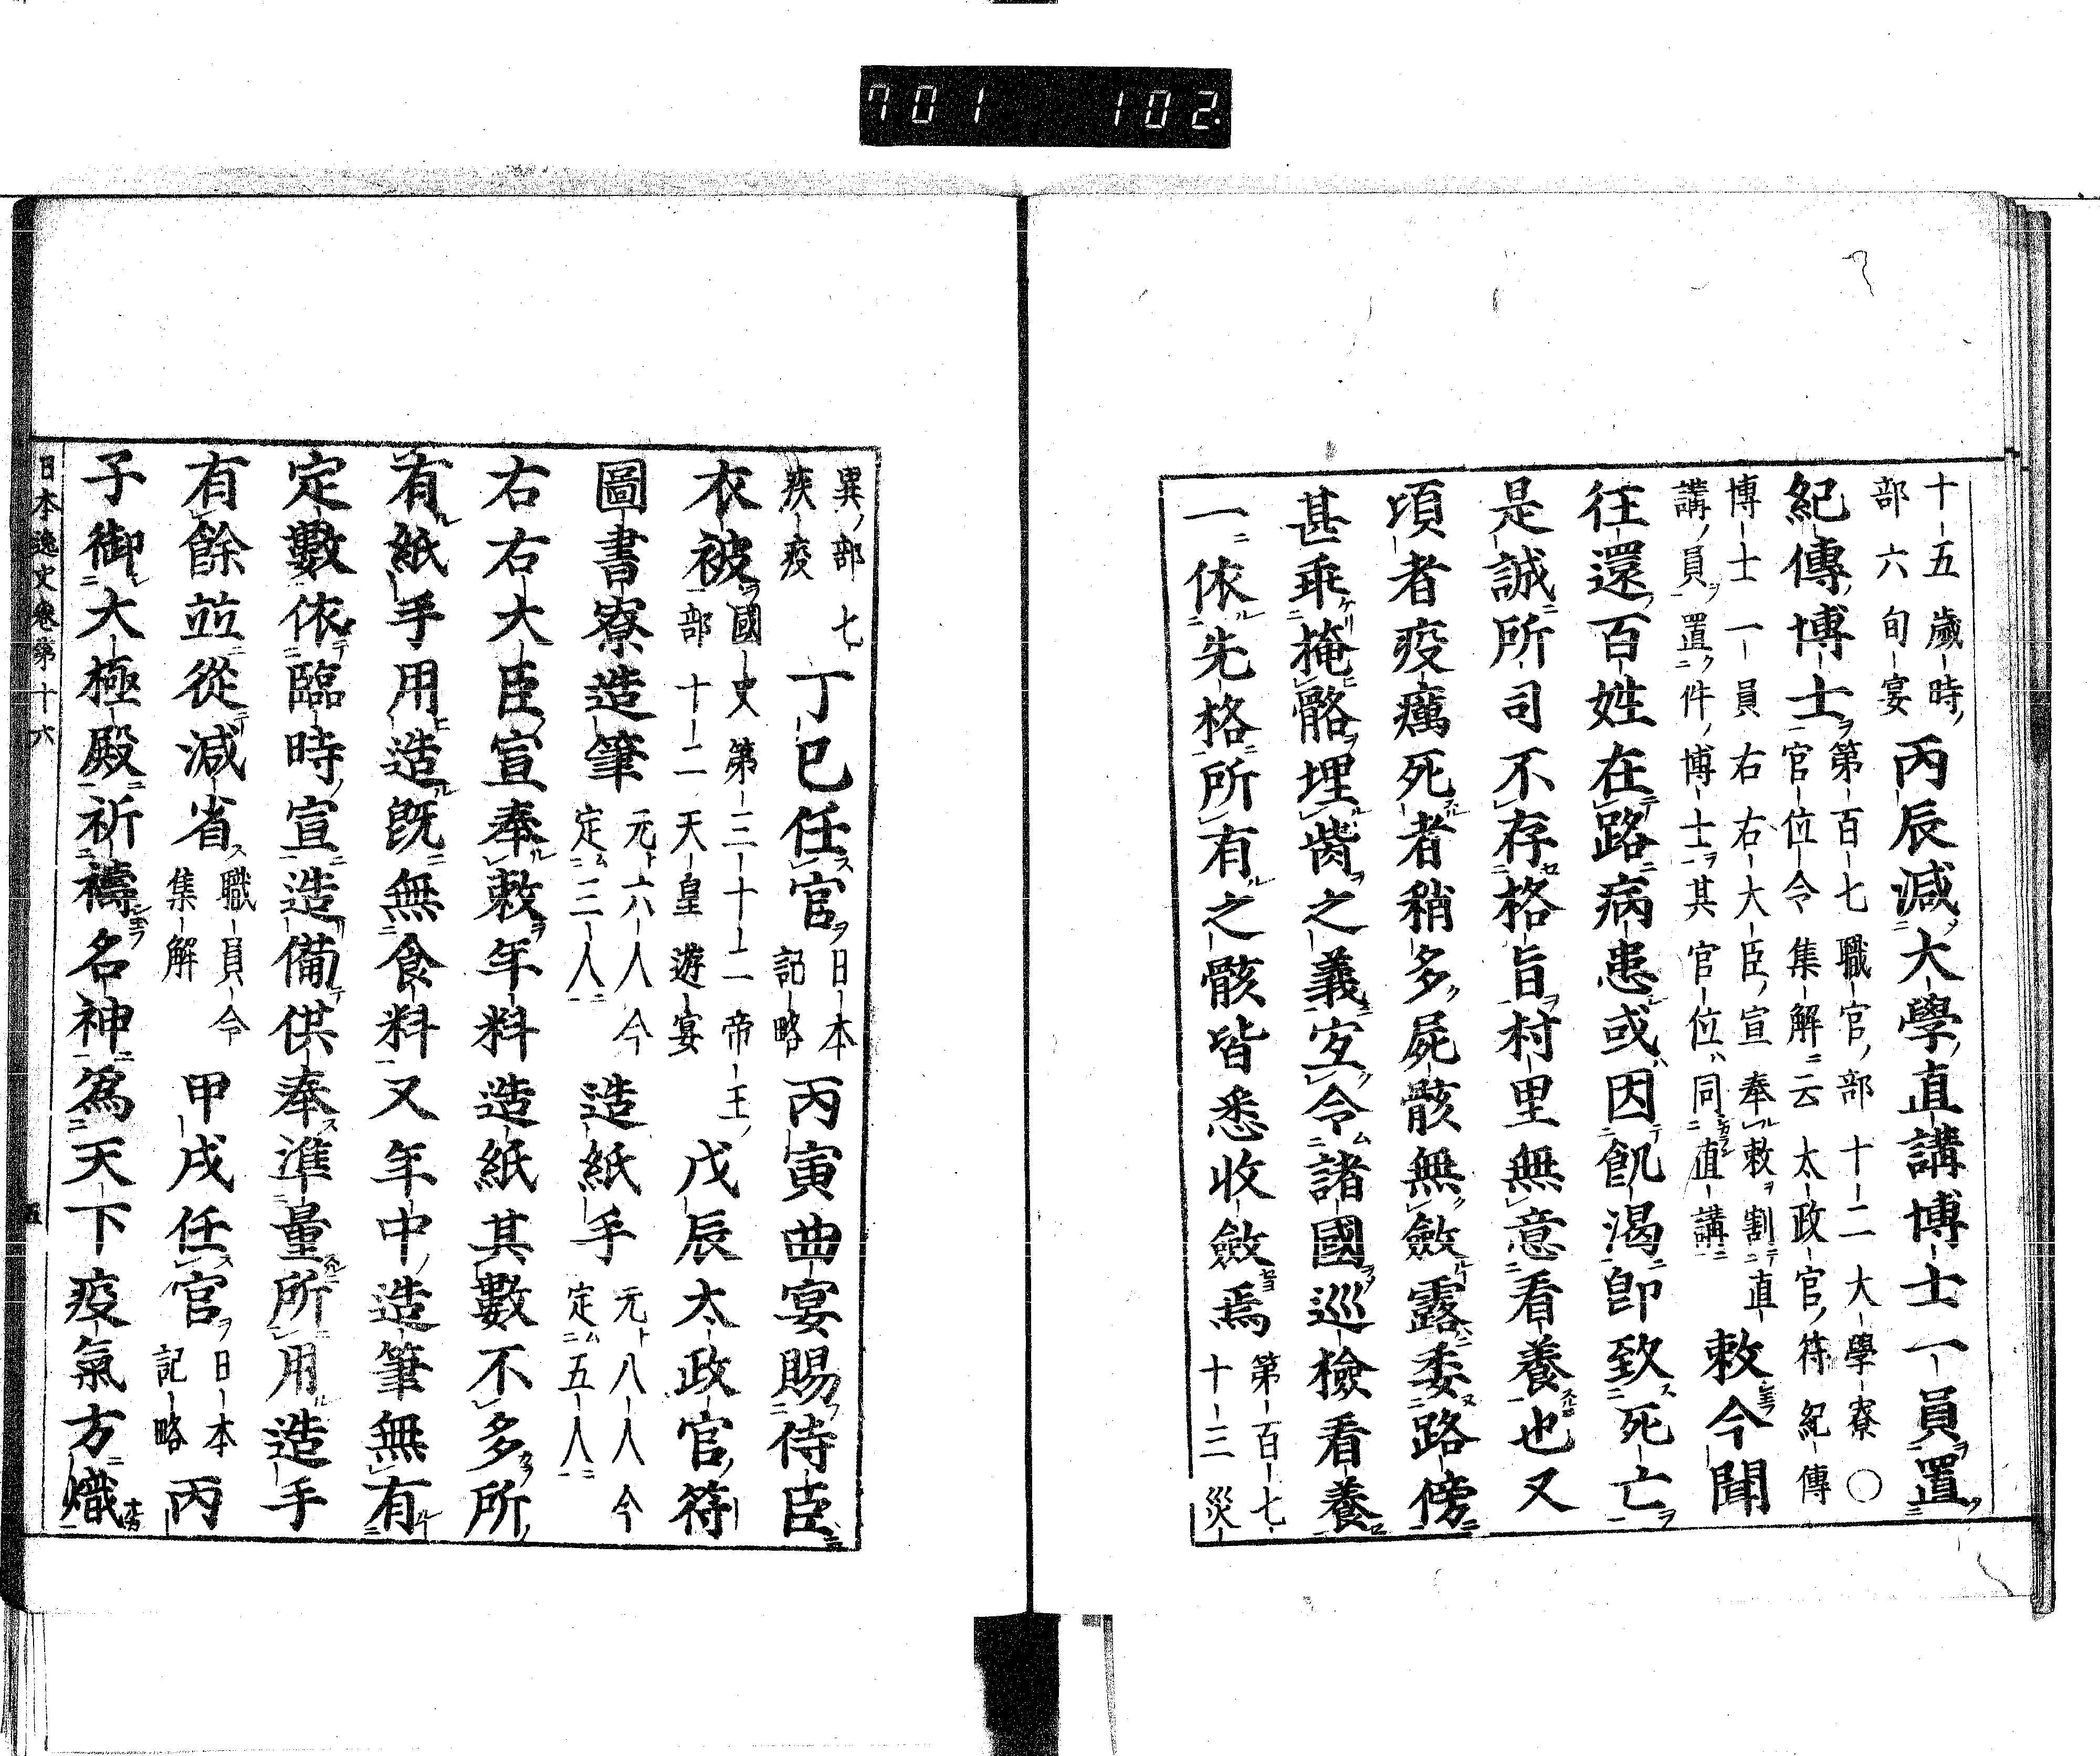 701 102.
十五歳時部六旬宴丙辰減大學直講博士一員置
紀傳博士第百七職官部十二大學寮○官位令集解云太政官符紀傳
博士一員右右大臣宣奉敕割直講員置件博士其官位同直講敕今聞
往還百姓在路病患或因飢渴即致死亡
是誠所司不存格旨村里無意看養也又
頃者疫癘死者稍多屍骸無斂露委路傍
甚乖掩骼埋胔之義宜令諸國巡檢看養
一依先格所有之骸皆悉收斂焉第百七十三災
異部七疾疫丁巳任官日本記略丙寅曲宴賜侍臣
衣被國史第三十二帝王部十二天皇遊宴戊辰太政官符
圖書寮造筆元六人今定三人造紙手元八人今定五人
右右大臣宣奉敕年料造紙其數不多所
有紙手用造既無食料又年中造筆無有
定數依臨時宣造備供奉準量所用造手
有餘並從減省職員令集解甲戌任官日本記略丙
子御大極殿祈禱名神為天下疫氣方熾
日本逸史卷第十六 五